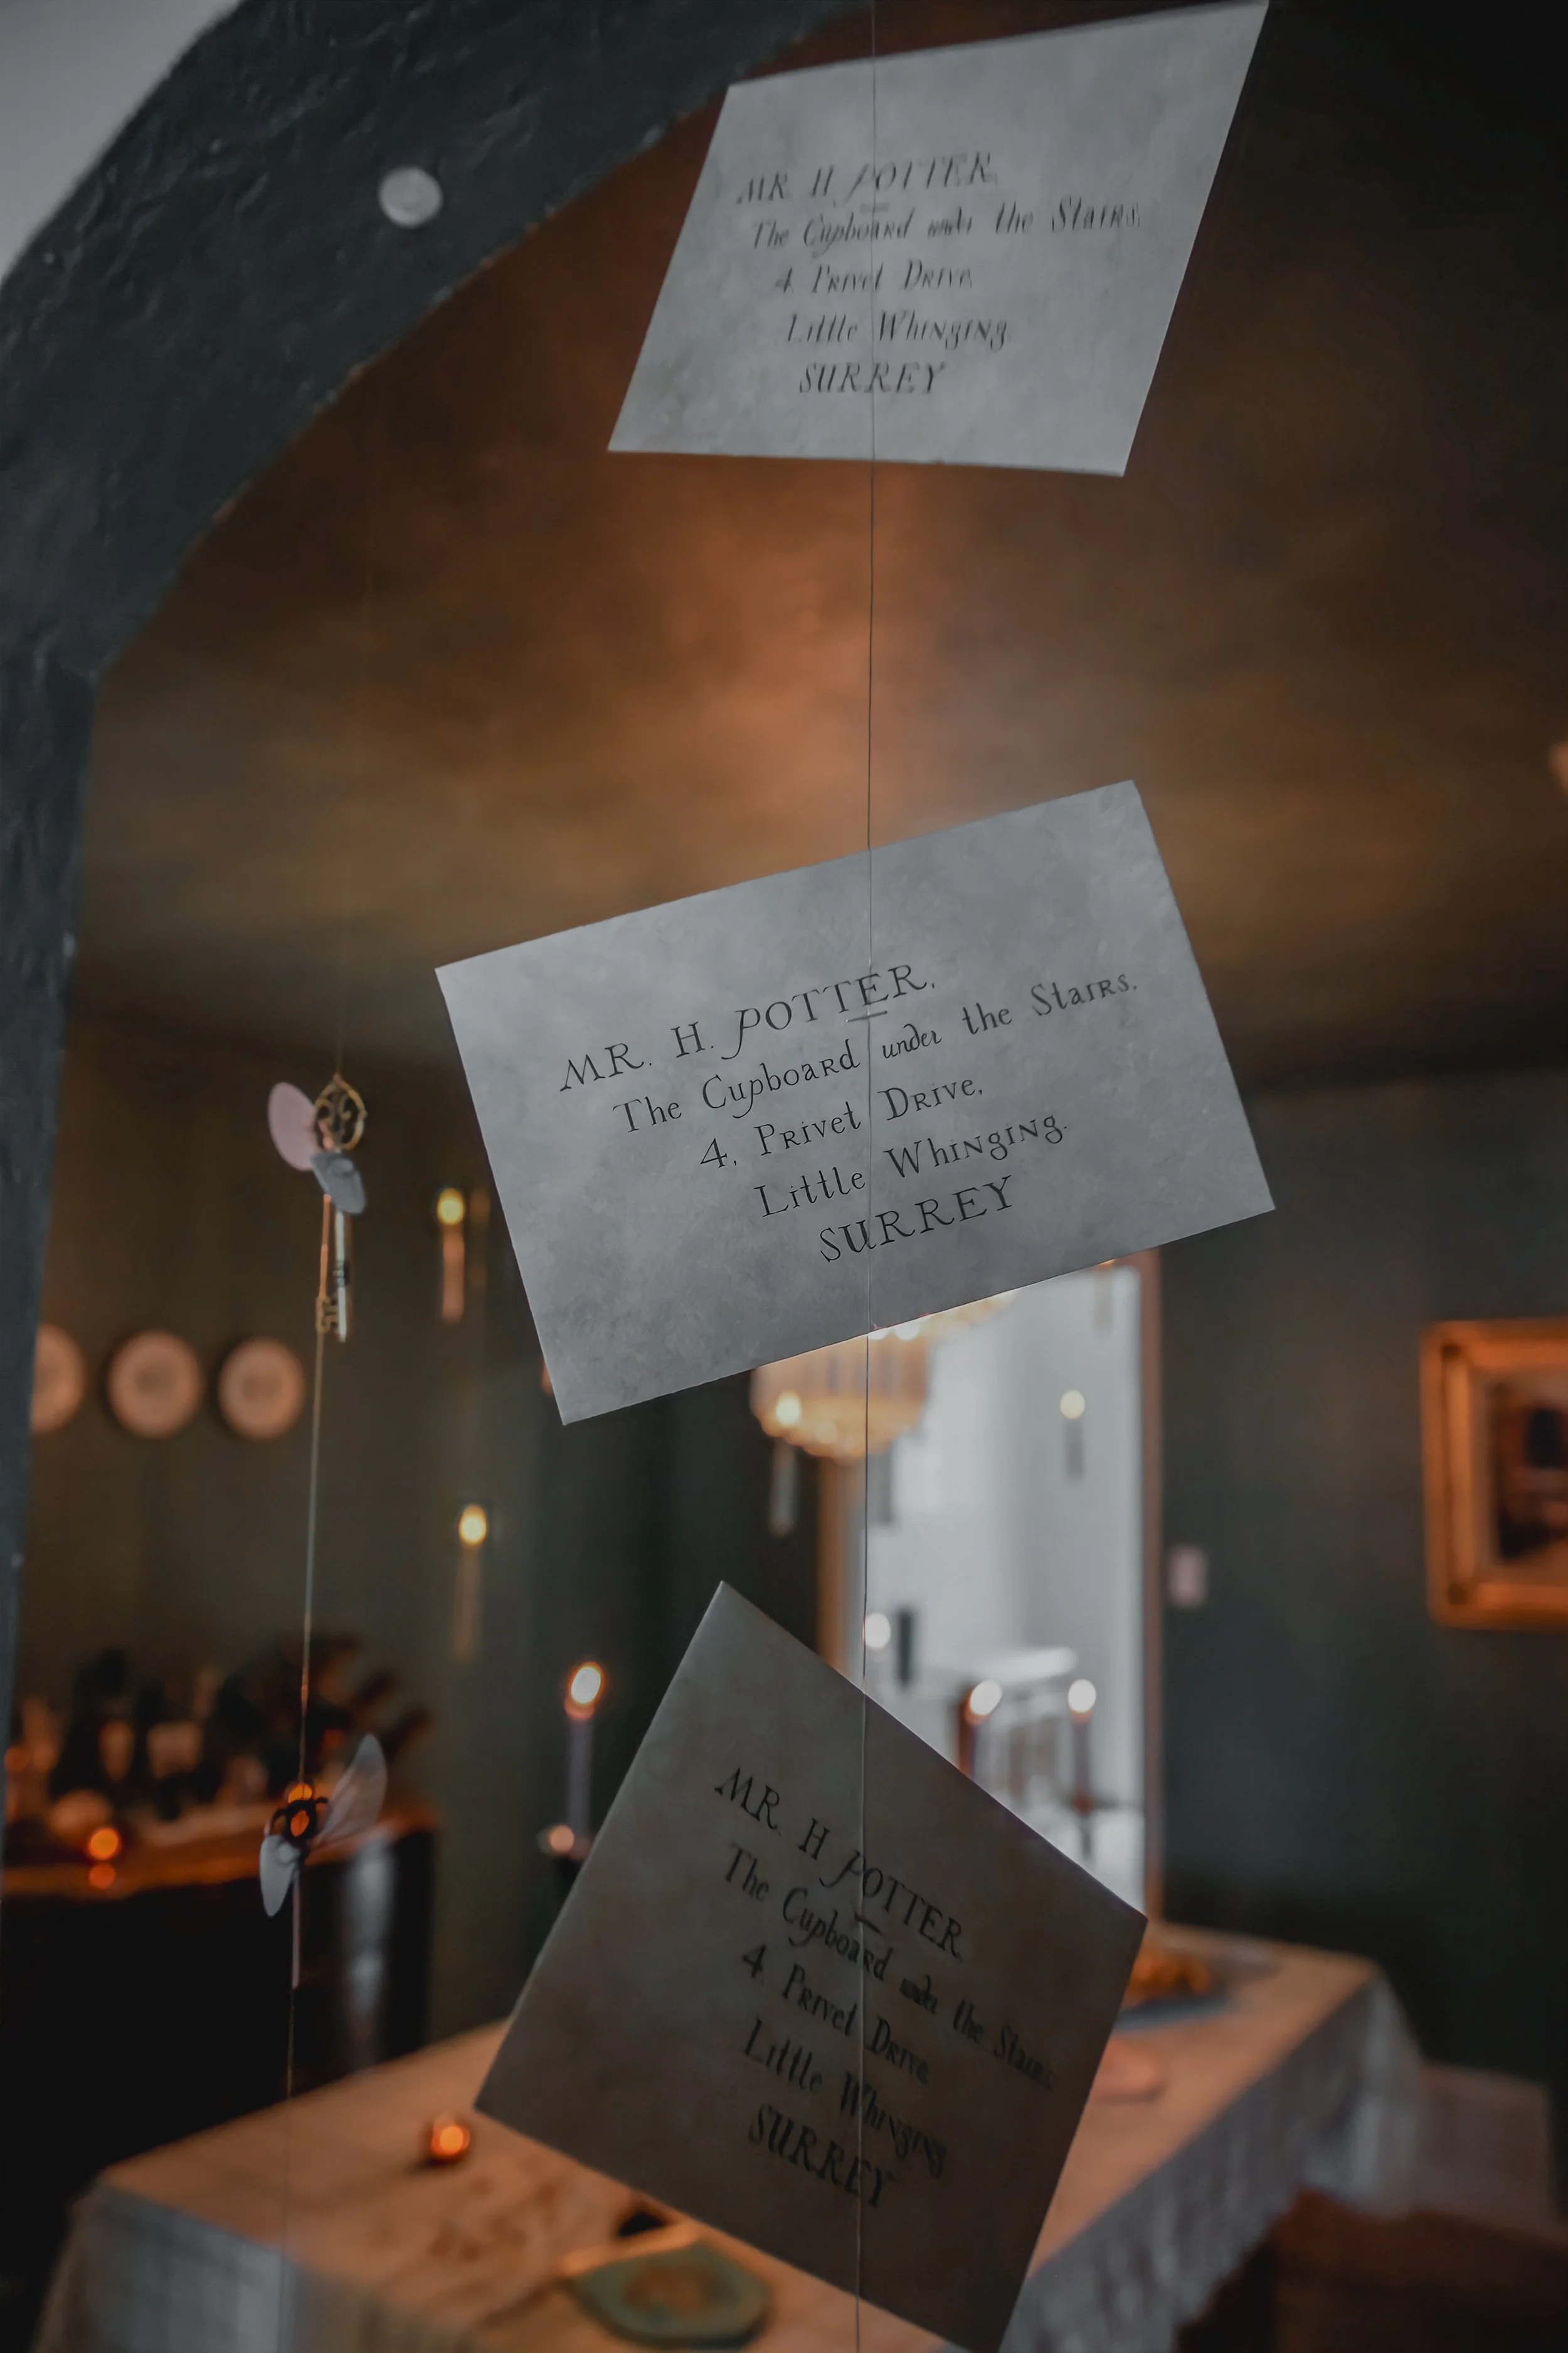 MR. H. POTTER,
The Cupboard under the Stairs,
4, Privet Drive,
Little Whinging,
SURREY
MR. H. POTTER,
The Cupboard under the Stairs,
4, Privet Drive,
Little Whinging.
SURREY
MR. H POTTER
The Cupboard under the Stairs
4 Privet Drive
Little Whinging
SURREY